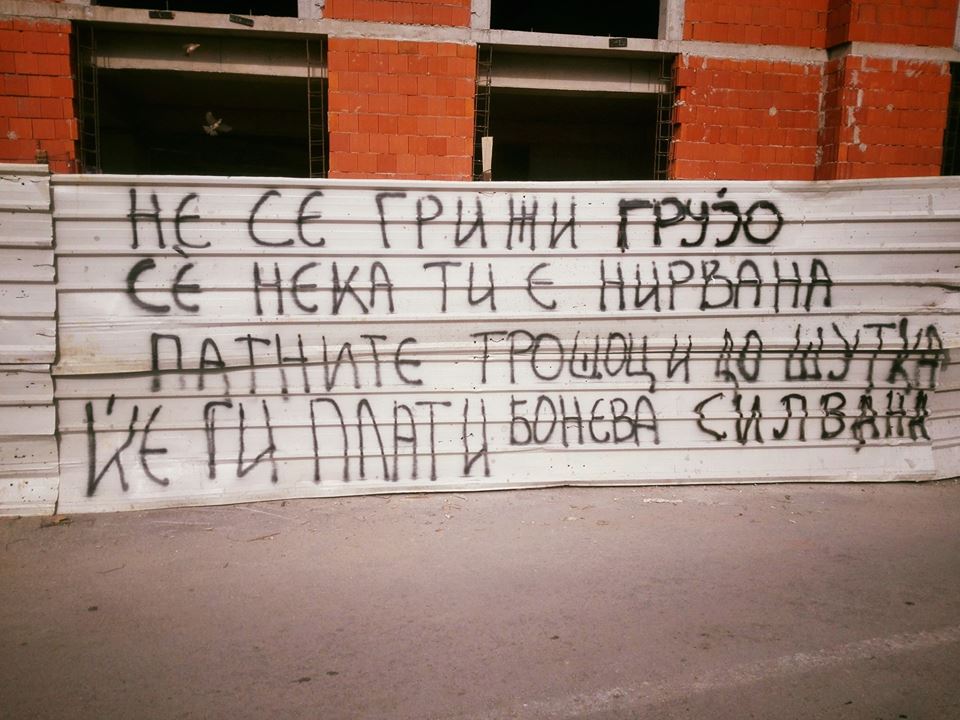 НЕ СЕ ГРИЖИ ГРУЈО
СЀ НЕКА ТИ Е НИРВАНА
ПАТНИТЕ ТРОШОЦИ ДО ШУТКА
ЌЕ ГИ ПЛАТИ БОНЕВА СИЛВАНА